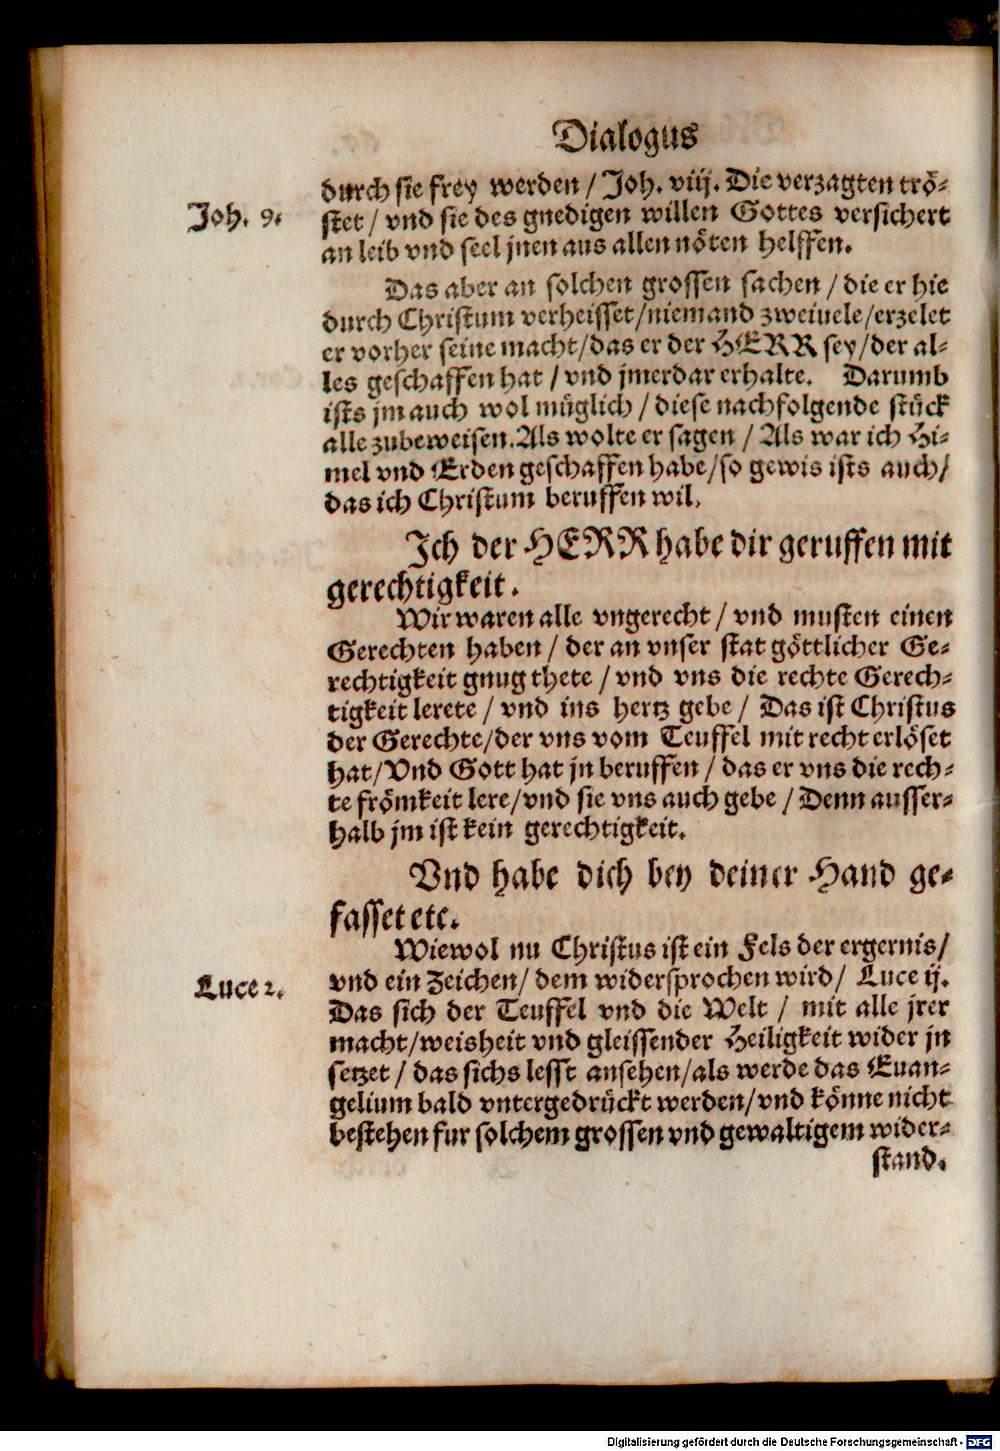 Dialogus
durch sie frey werden / Joh. viij. Die verzagten trö-
Joh. 9.
stet / vnd sie des gnedigen willen Gottes versichert
an leib vnd seel jnen aus allen nöten helffen.
Das aber an solchen grossen sachen / die er hie
durch Christum verheisset/niemand zweiuele/erzelet
er vorher seine macht/das er der HERR sey/der al-
les geschaffen hat / vnd jmerdar erhalte. Darumb
ists jm auch wol müglich / diese nachfolgende stück
alle zubeweisen. Als wolte er sagen / Als war ich Hi-
mel vnd Erden geschaffen habe/so gewis ists auch/
das ich Christum beruffen wil.
Ich der HERR habe dir geruffen mit
gerechtigkeit.
Wir waren alle vngerecht / vnd musten einen
Gerechten haben / der an vnser stat göttlicher Ge-
rechtigkeit gnug thete / vnd vns die rechte Gerech-
tigkeit lerete / vnd ins hertz gebe / Das ist Christus
der Gerechte/der vns vom Teuffel mit recht erlöset
hat/Vnd Gott hat jn beruffen / das er vns die rech-
te frömkeit lere/vnd sie vns auch gebe / Denn ausser-
halb jm ist kein gerechtigkeit.
Vnd habe dich bey deiner Hand ge-
fasset etc.
Wiewol nu Christus ist ein Fels der ergernis/
Luce 2.
vnd ein Zeichen/ dem widersprochen wird/ Luce ij.
Das sich der Teuffel vnd die Welt / mit alle jrer
macht/weisheit vnd gleissender Heiligkeit wider jn
setzet / das sichs lesst ansehen/als werde das Euan-
gelium bald vntergedrückt werden/vnd könne nicht
bestehen fur solchem grossen vnd gewaltigem wider-
stand.
Digitalisierung gefördert durch die Deutsche Forschungsgemeinschaft - DFG